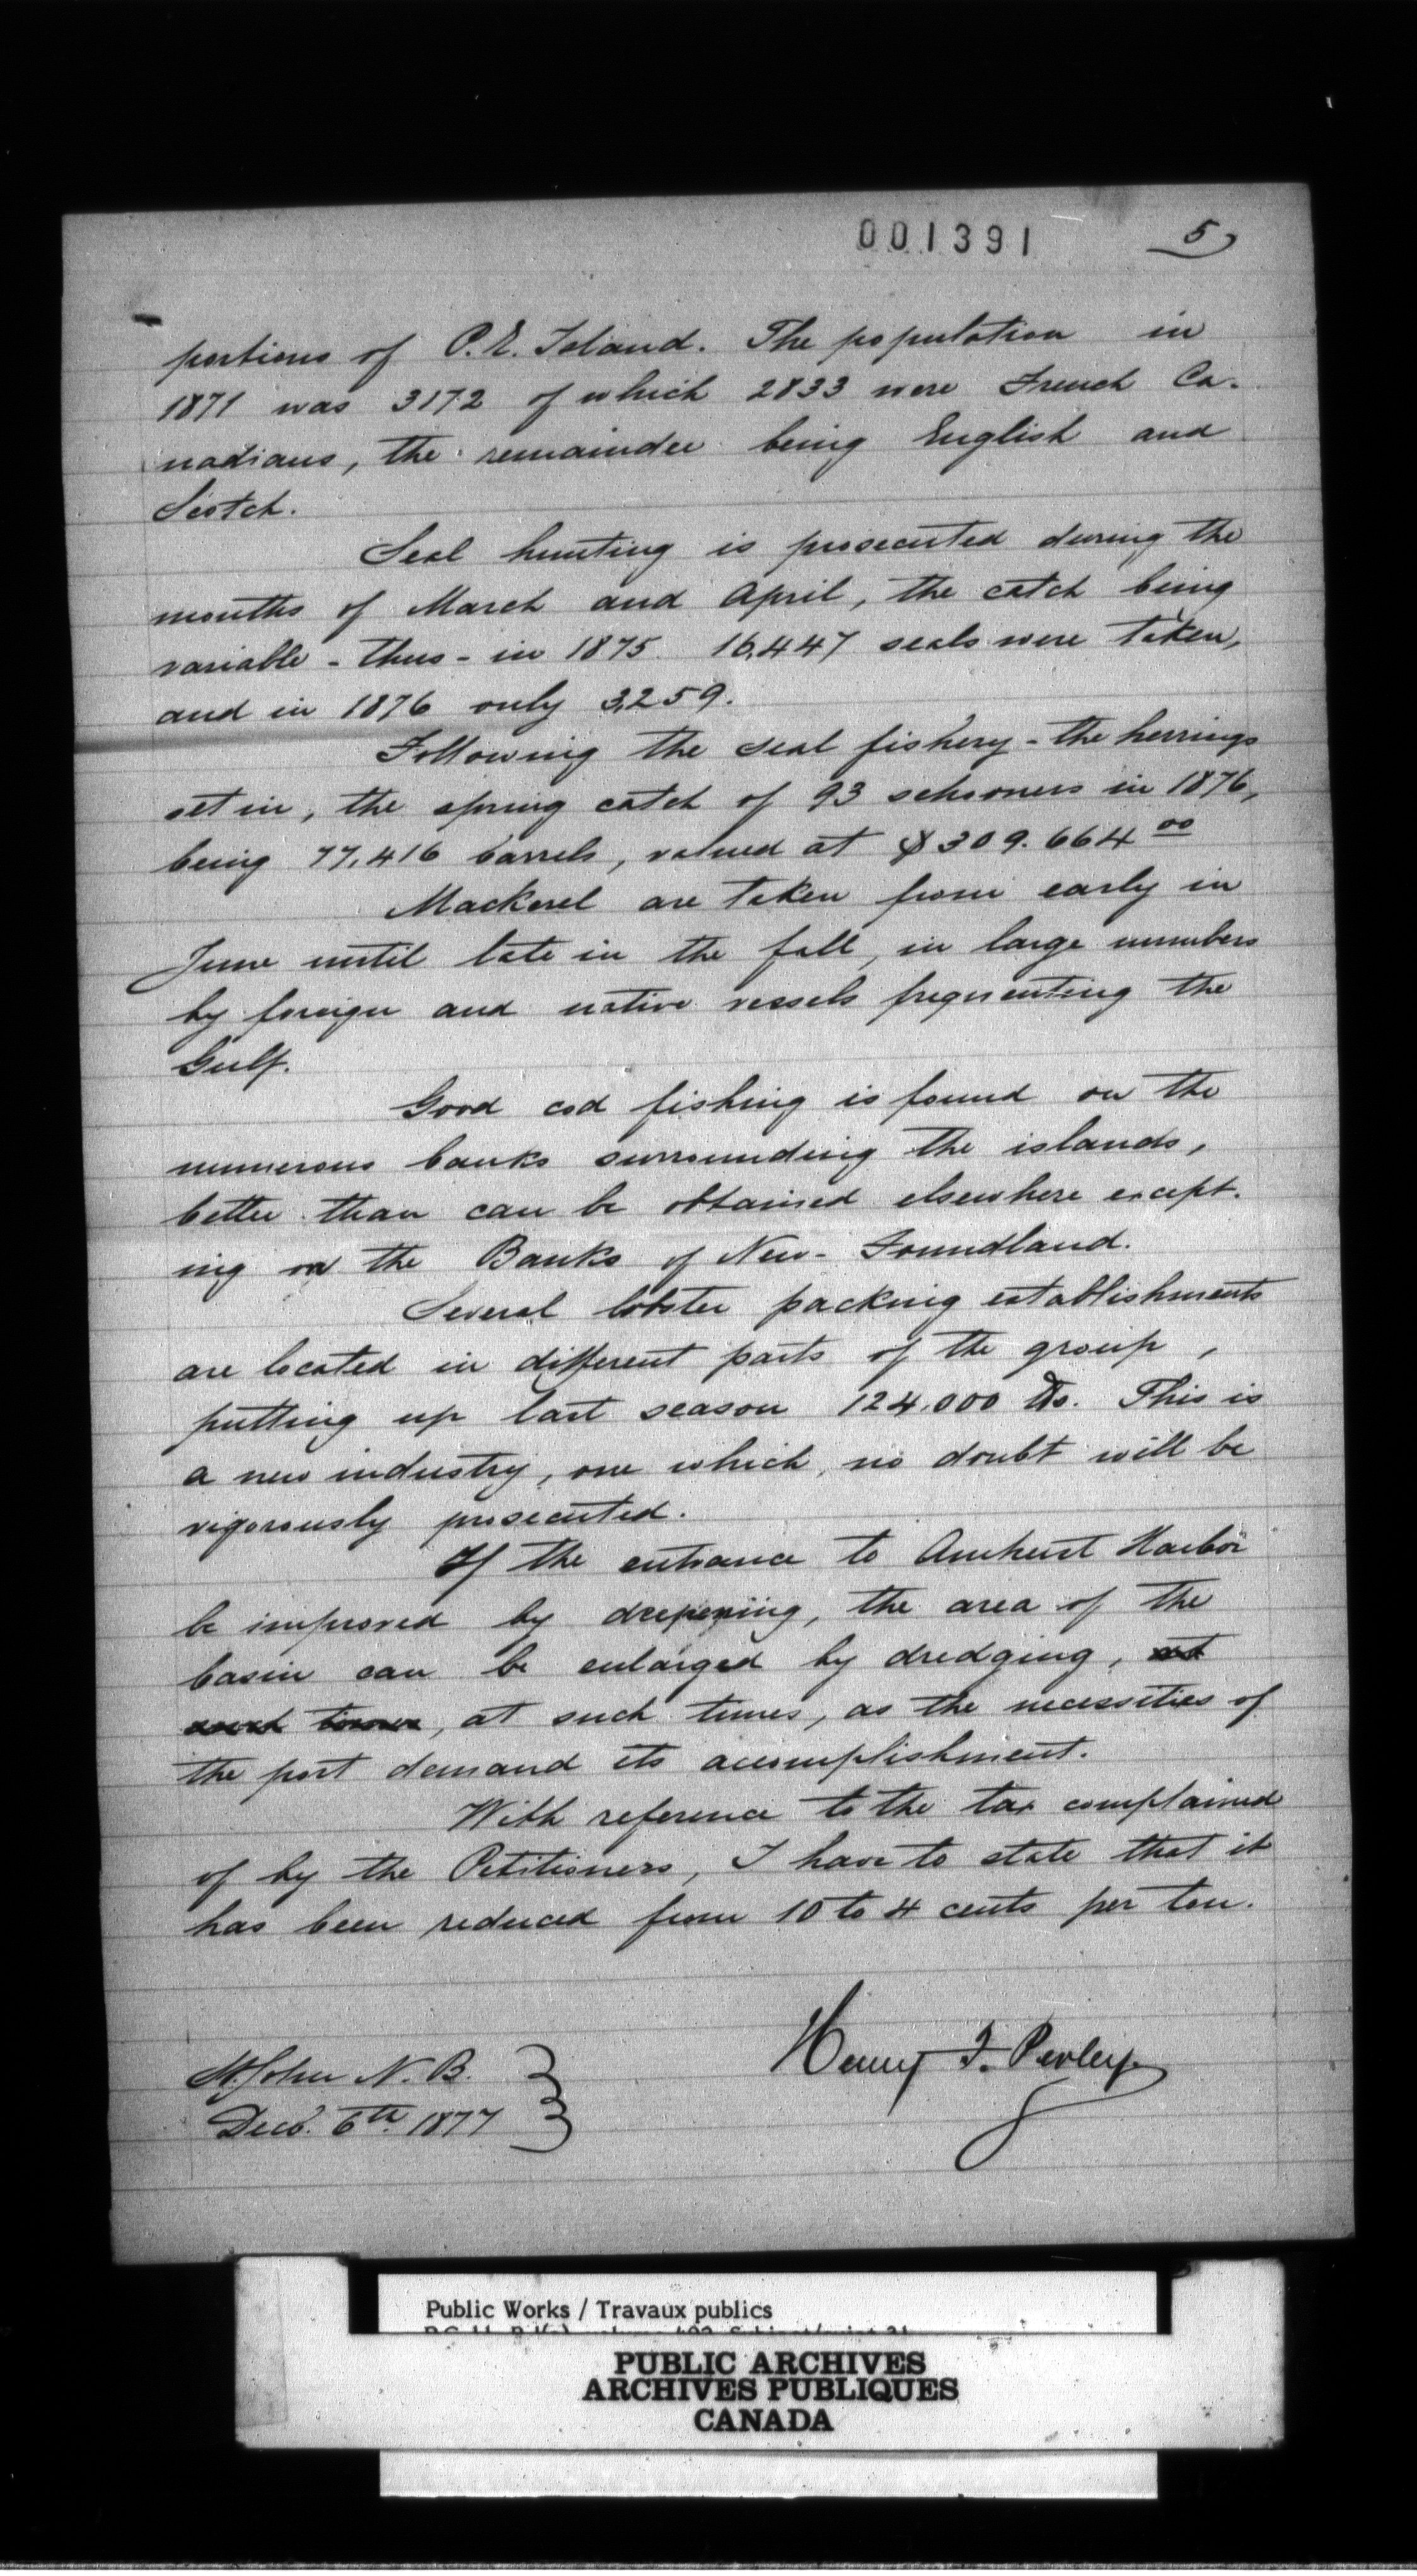 001391
5
portions of P. E. Island. The population in
1871 was 3172 of which 2833 were French Ca-
nadians, the remainder being English and
Scotch.
Seal hunting is prosecuted during the
months of March and April, the catch being
variable - thus - in 1875 16,447 seals were taken,
and in 1876 only 3,259.
Following the seal fishery - the herrings
set in, the spring catch of 93 schooners in 1876,
being 77,416 barrels, valued at $309.664 00
Mackerel are taken from early in
June until late in the fall, in large numbers
by foreign and native vessels frequenting the
Gulf.
Good cod fishing is found on the
numerous banks surrounding the islands,
better than can be obtained elsewhere except-
ing on the Banks of New-Foundland.
Several lobster packing establishments
are located in different parts of the group,
putting up last season 124.000 lbs. This is
a new industry, one which, no doubt will be
vigorously prosecuted.
If the entrance to Amherst Harbor
be improved by deepening, the area of the
basin can be enlarged by dredging, at
such times, at such times, as the necessities of
the port demand its accomplishment.
With reference to the tax complained
of by the Petitioners, I have to state that it
has been reduced from 10 to 4 cents per ton.
Henry F. Perley
St. John N. B.
Decb. 6th. 1877
Public Works / Travaux publics
PUBLIC ARCHIVES
ARCHIVES PUBLIQUES
CANADA